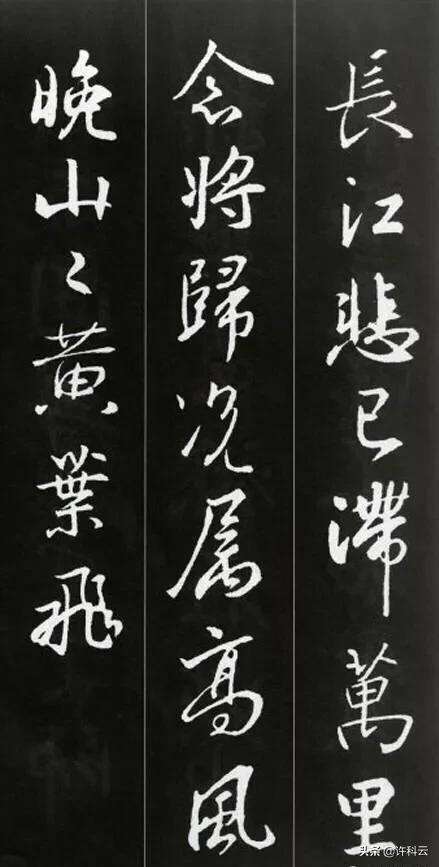 長江悲已滯萬里
念將歸况属高風
晚山〻黄葉飛
头条@许科云